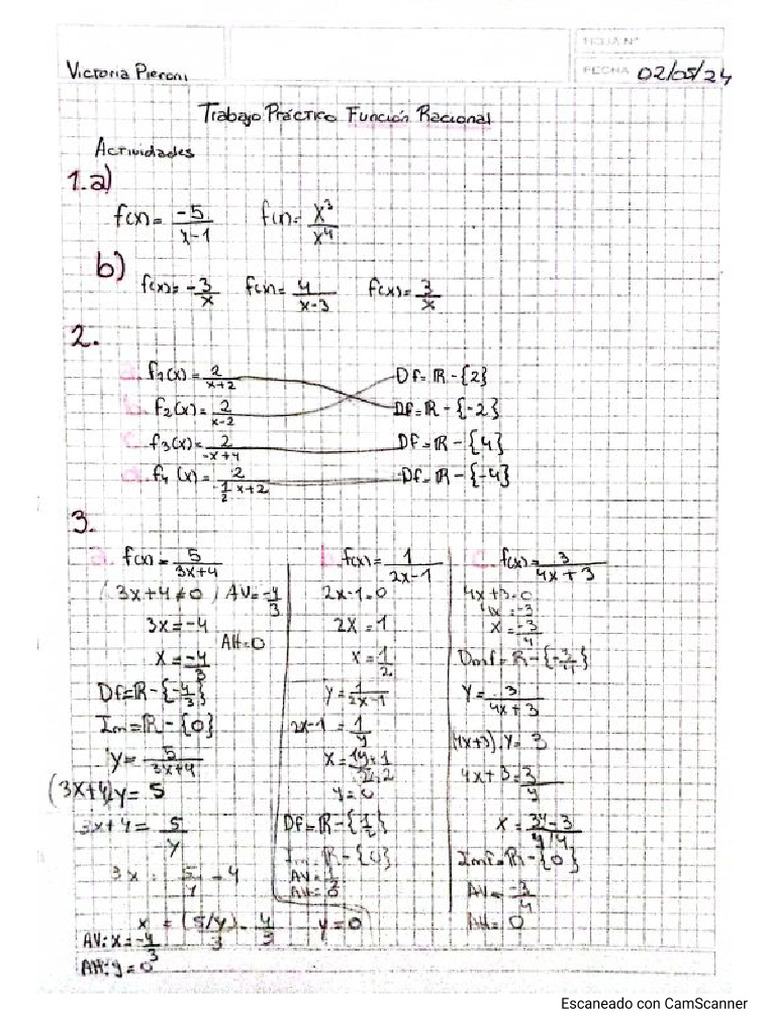 HOJA N°
Victoria Pieroni
FECHA 02/05/24
Trabajo Práctico Función Racional
Actividades
1.a)
f(x)= -5/(x-1) f(x)= x³/x⁴
b)
f(x)= -3/x f(x)= 4/(x-3) f(x)= 3/x
2.
a. f₁(x)= 2/(x+2) Df= ℝ -{2}
b. f₂(x)= 2/(x-2) Df= ℝ -{-2}
c. f₃(x)= 2/(-x+4) Df= ℝ -{4}
d. f₄(x)= 2/(-1/2 x+2) Df= ℝ -{-4}
3.
a. f(x)= 5/(3x+4)
(3x+4≠0) AV= -4/3
3x=-4
AH=0
x= -4/3
Df=ℝ-{-4/3}
Im=ℝ-{0}
y= 5/(3x+4)
(3x+4)y= 5
3x+4= 5/y
3x = 5/y -4
x = (5/y)/3 - 4/3
AV: x= -4/3
AH: y=0
b. f(x)= 1/(2x-1)
2x-1=0
2x=1
x= 1/2
y= 1/(2x-1)
2x-1= 1/y
y=0
Df=ℝ-{1/2}
Im=ℝ-{0}
y=0
c. f(x)= 3/(4x+3)
4x+3=0
4x=-3
x= -3/4
Domf=ℝ-{-3/4}
y= 3/(4x+3)
(4x+3).y= 3
4x+3= 3/y
Imf=ℝ-{0}
AV= -3/4
AH= 0
Escaneado con CamScanner